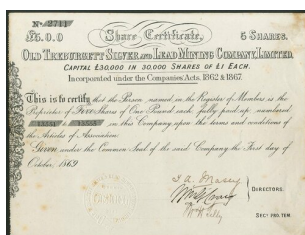 No. 2711
£5.0.0 Share Certificate, 5 SHARES.
OLD TREBURGETT SILVER AND LEAD MINING COMPANY, LIMITED.
CAPITAL £30,000 IN 30,000 SHARES OF £1 EACH.
Incorporated under the Companies' Acts, 1862 & 1867.
This is to certify that the Person named in the Register of Members is the
Proprietor of Five Shares of One Pound each, fully paid up, numbered
to in this Company upon the terms and conditions of
the Articles of Association.
Given under the Common Seal of the said Company the First day of
October, 1869
DIRECTORS.
SECY. PRO. TEM.